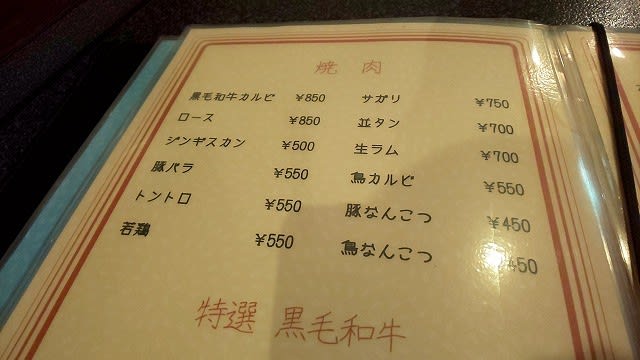 焼肉
黒毛和牛カルビ ¥850
ロース ¥850
ジンギスカン ¥500
豚バラ ¥550
トントロ ¥550
若鶏 ¥550
サガリ ¥750
並タン ¥700
生ラム ¥700
鳥カルビ ¥550
豚なんこつ ¥450
鳥なんこつ
特選 黒毛和牛